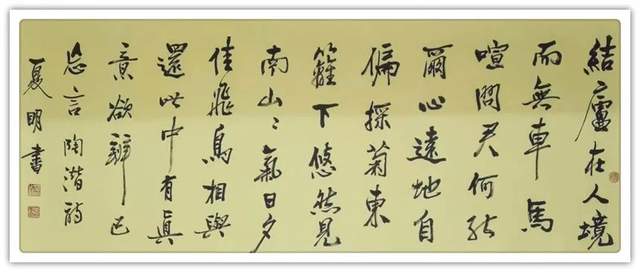 結廬在人境
而無車馬
喧問君何能
爾心遠地自
偏採菊東
籬下悠然見
南山〻氣日夕
佳飛鳥相與
還此中有眞
意欲辨已
忘言 陶潛詩
夏明書